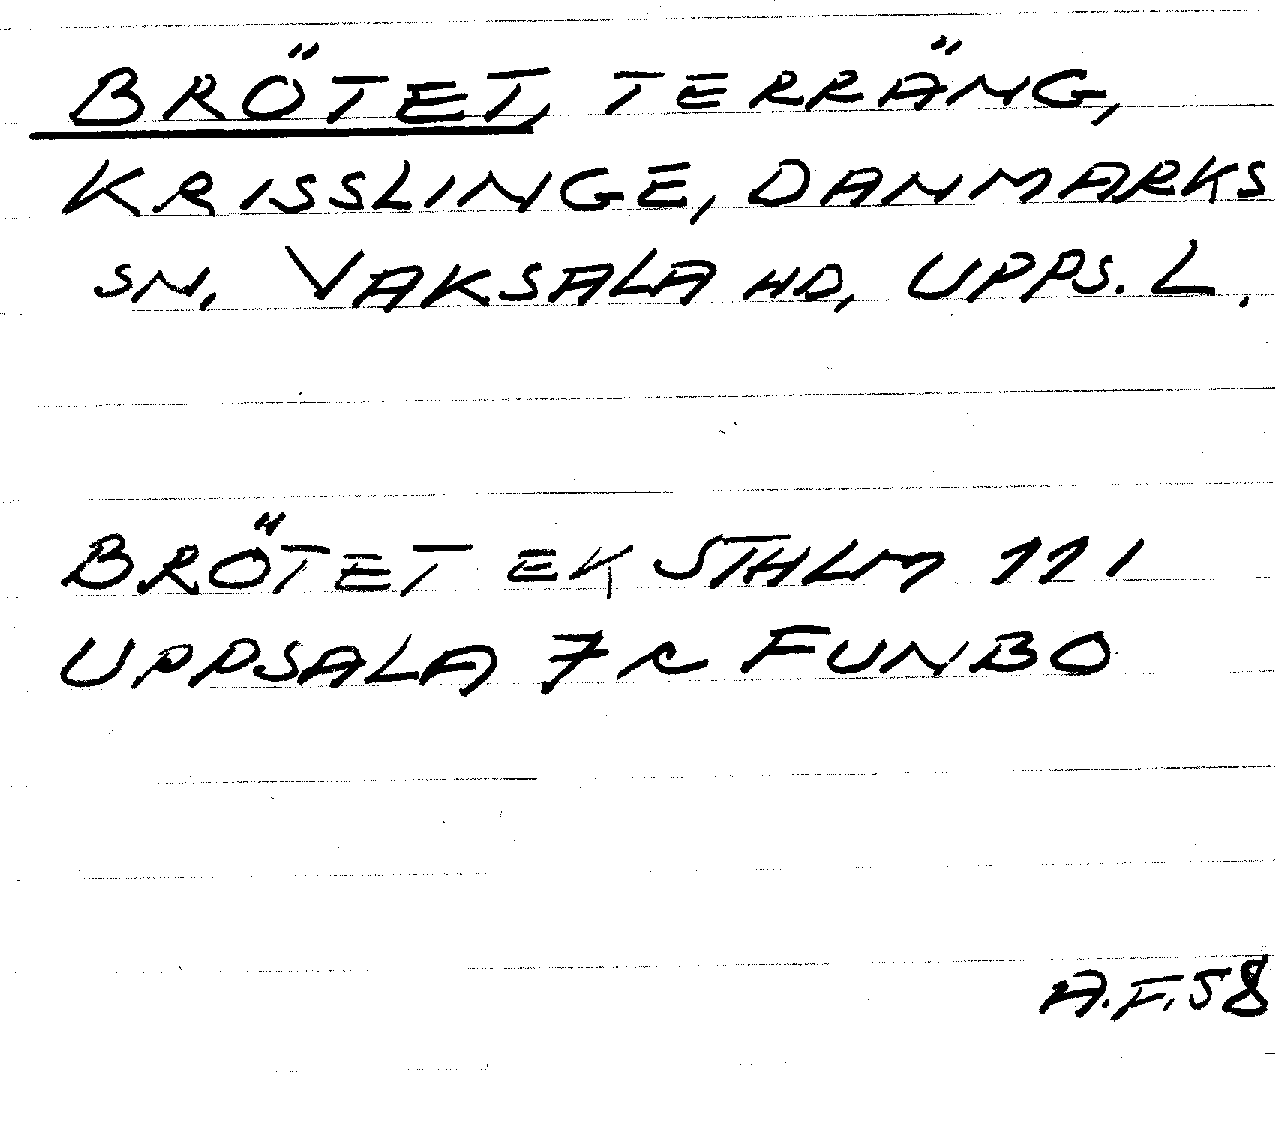 BRÖTET, TERRÄNG,
KRISSLINGE, DANMARKS
SN, VAKSALA HD, UPPS. L.
BRÖTET EK STHLM 111
UPPSALA 7 r FUNBO
A.F. 58